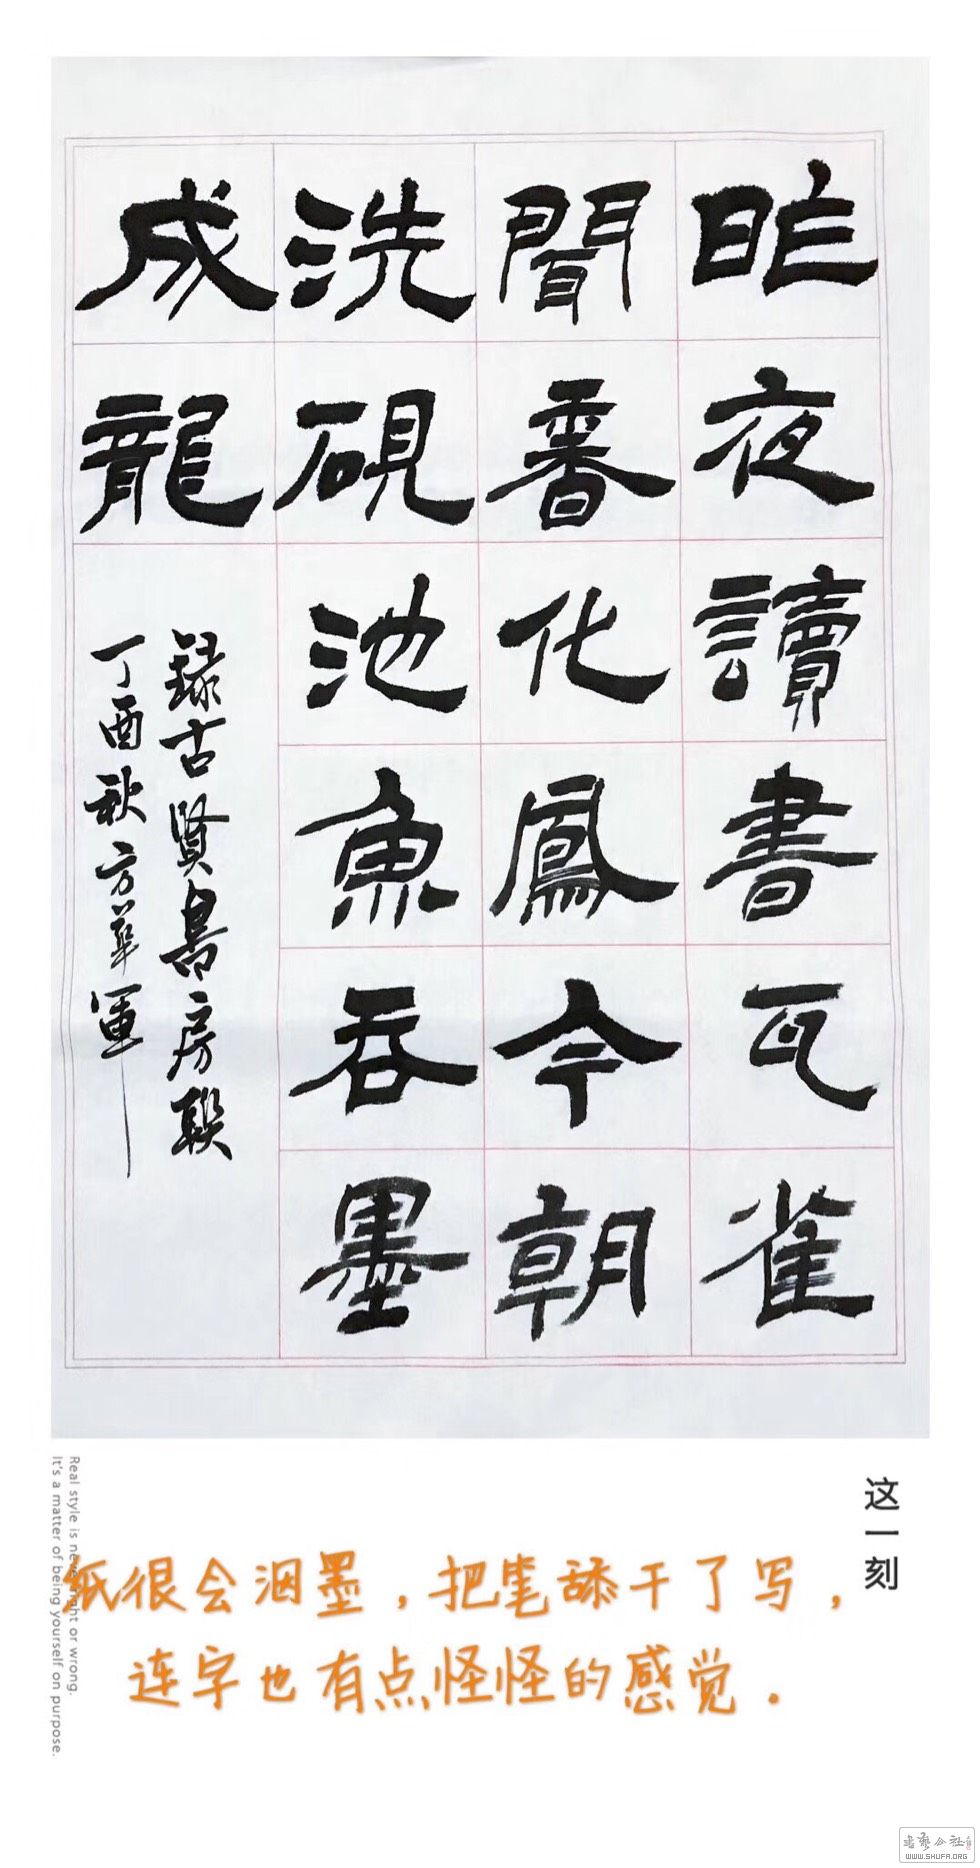 昨夜讀書瓦雀
聞香化鳳今朝
洗硯池魚吞墨
成龍
録古賢書房聯
丁酉秋方華軍
这一刻
Real style is never right or wrong.
It's a matter of being yourself on purpose.
纸很会洇墨，把笔舔干了写，
连字也有点怪怪的感觉．
書藝公社
WWW.SHUFA.ORG